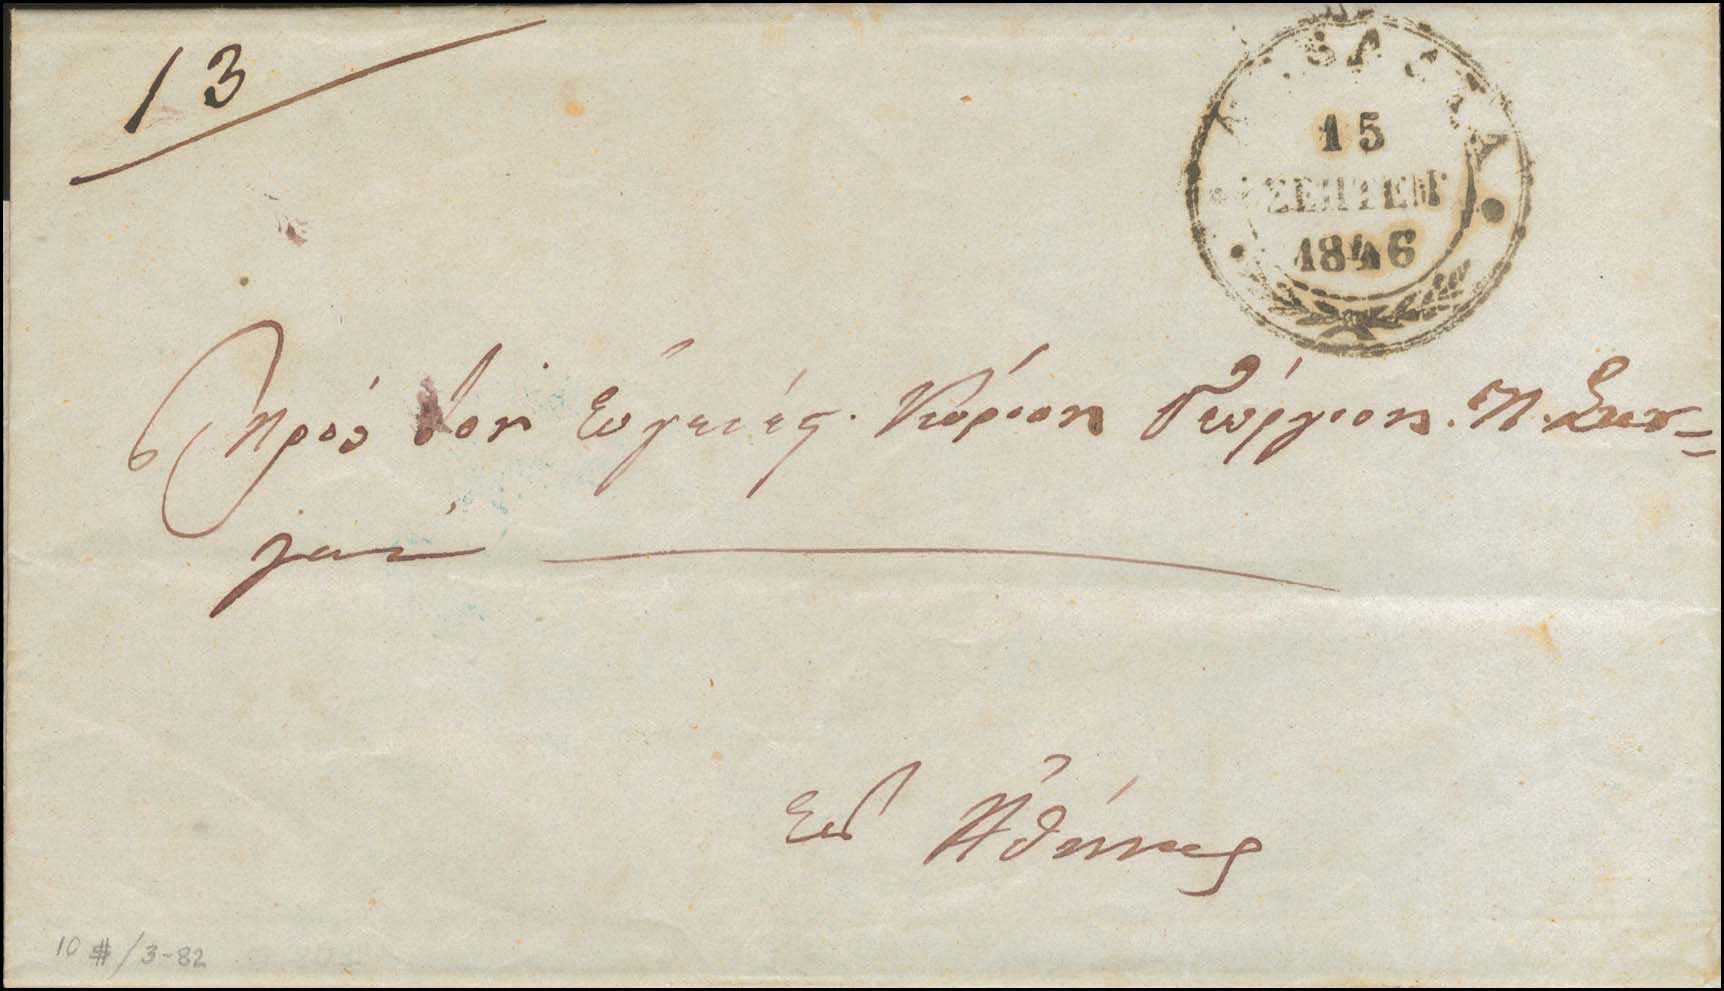 13
15
ΣΕΠΤΕΜ
1846
Πρὸς τὸν Εὐγενέσ. Κύριον Γεώργιον. Π. Σκου=
Εἰς Ἀθήνας
10 # / 3-82